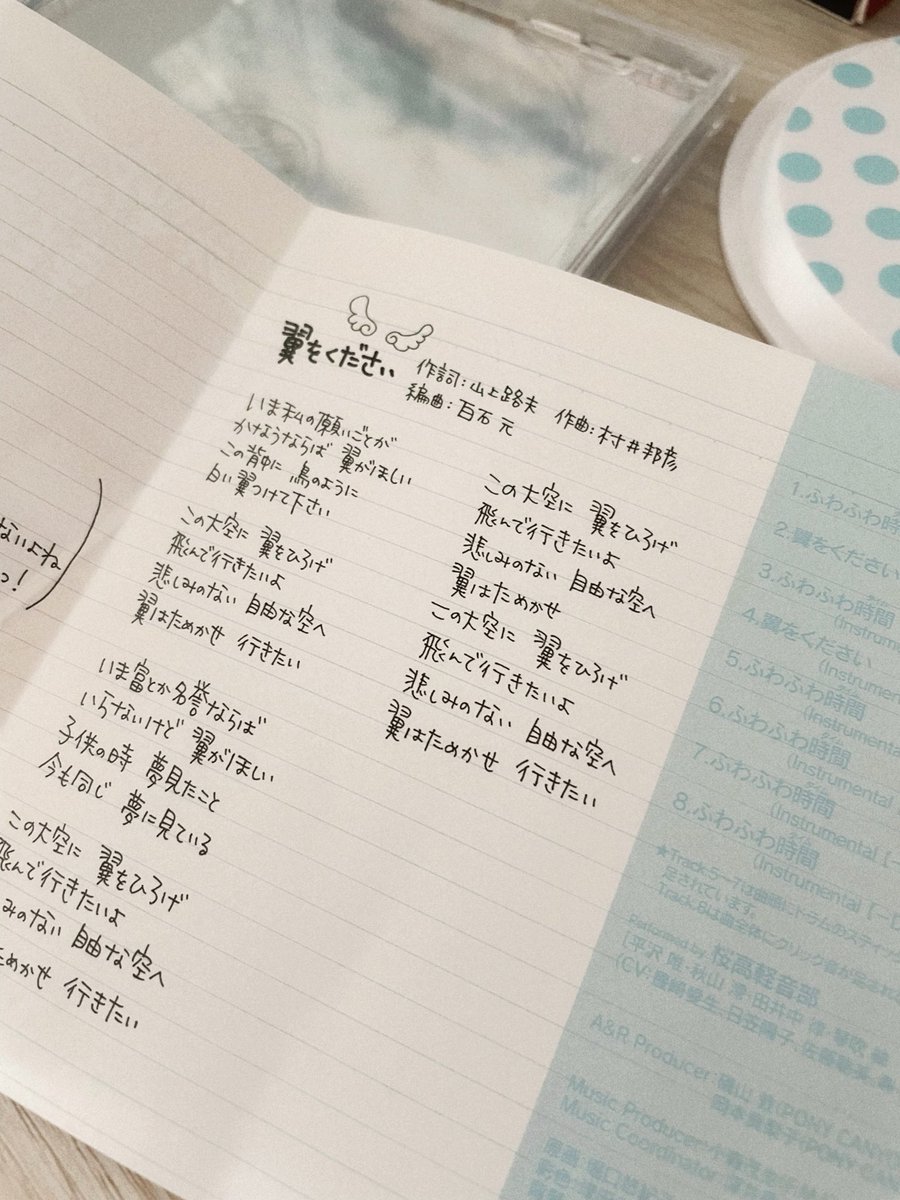 ないよね
っ!
翼をください
作詞:山上路夫 作曲:村井邦彦
編曲:百石 元
いま私の願いごとが
かなうならば 翼がほしい
この背中に 鳥のように
白い翼つけて下さい
この大空に 翼をひろげ
飛んで行きたいよ
悲しみのない 自由な空へ
翼はためかせ 行きたい
いま富とか名誉ならば
いらないけど 翼がほしい
子供の時 夢見たこと
今も同じ 夢に見ている
この大空に 翼をひろげ
飛んで行きたいよ
みのない 自由な空へ
ためかせ 行きたい
この大空に 翼をひろげ
飛んで行きたいよ
悲しみのない 自由な空へ
翼はためかせ
この大空に 翼をひろげ
飛んで行きたいよ
悲しみのない 自由な空へ
翼はためかせ 行きたい
1.ふわふわ時
2.翼をください
3.ふわふわ時間
(Instrumenta
4.翼をください
(Instrumen
5.ふわふわ時間
(Instrumenta
6.ふわふわ時間
(Instrumental
7.ふわふわ時間
(Instrumental [-
8.ふわふわ時間
(Instrumental [-D
★Track5~7は曲頭にドラムのスティッ
足されています。
Track.8は曲全体にクリック音が足され
Performed by 桜高軽音部
[平沢 唯・秋山 澪・田井中 律・琴吹 紬
(CV:豊崎愛生、日笠陽子、佐藤聡美、
A&R Producer:
(PONY CANYO
(PONY CAN
Music Producer:
Music Coordinator